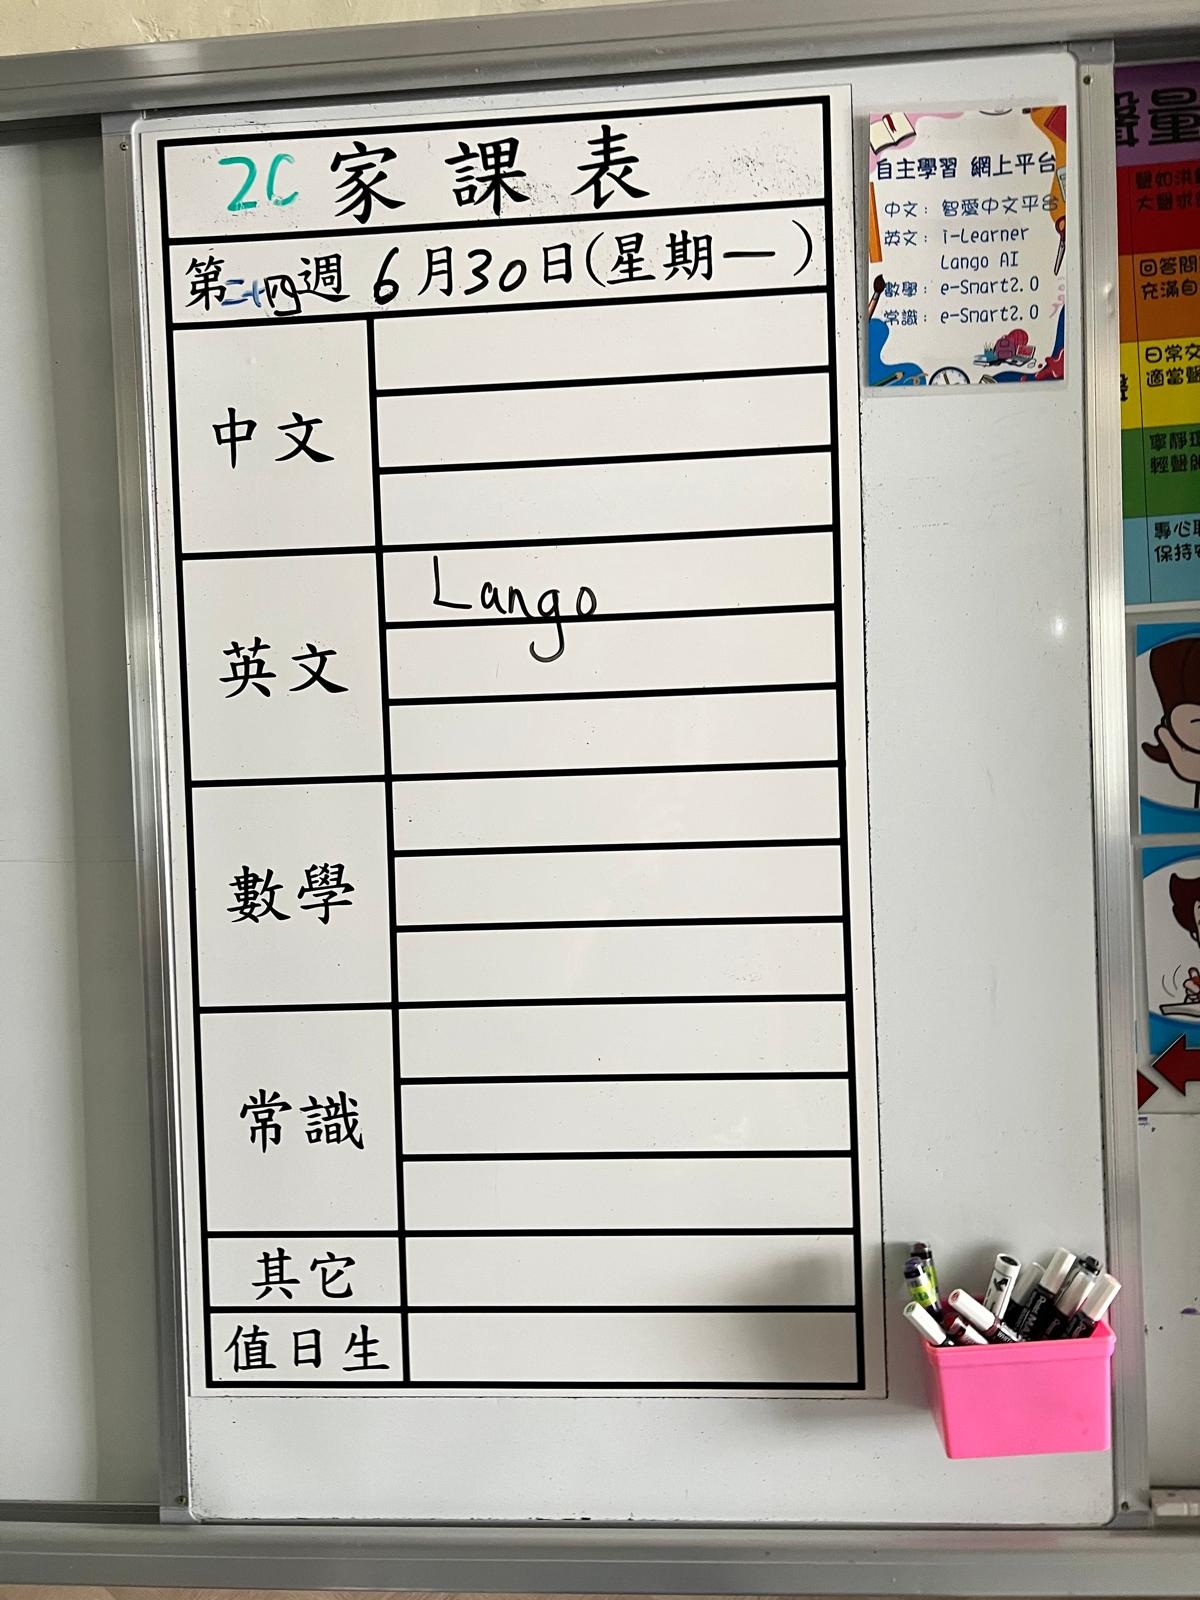 2C 家課表
第二十四週 6月30日(星期一)
中文
英文
Lango
數學
常識
其它
值日生
自主學習 網上平台
中文：智愛中文平台
英文：i-Learner
Lango AI
數學：e-Smart2.0
常識：e-Smart2.0
量
聲如洪
大聲求
回答問
充滿自
日常交
適當聲
寧靜環
輕聲
專心
保持